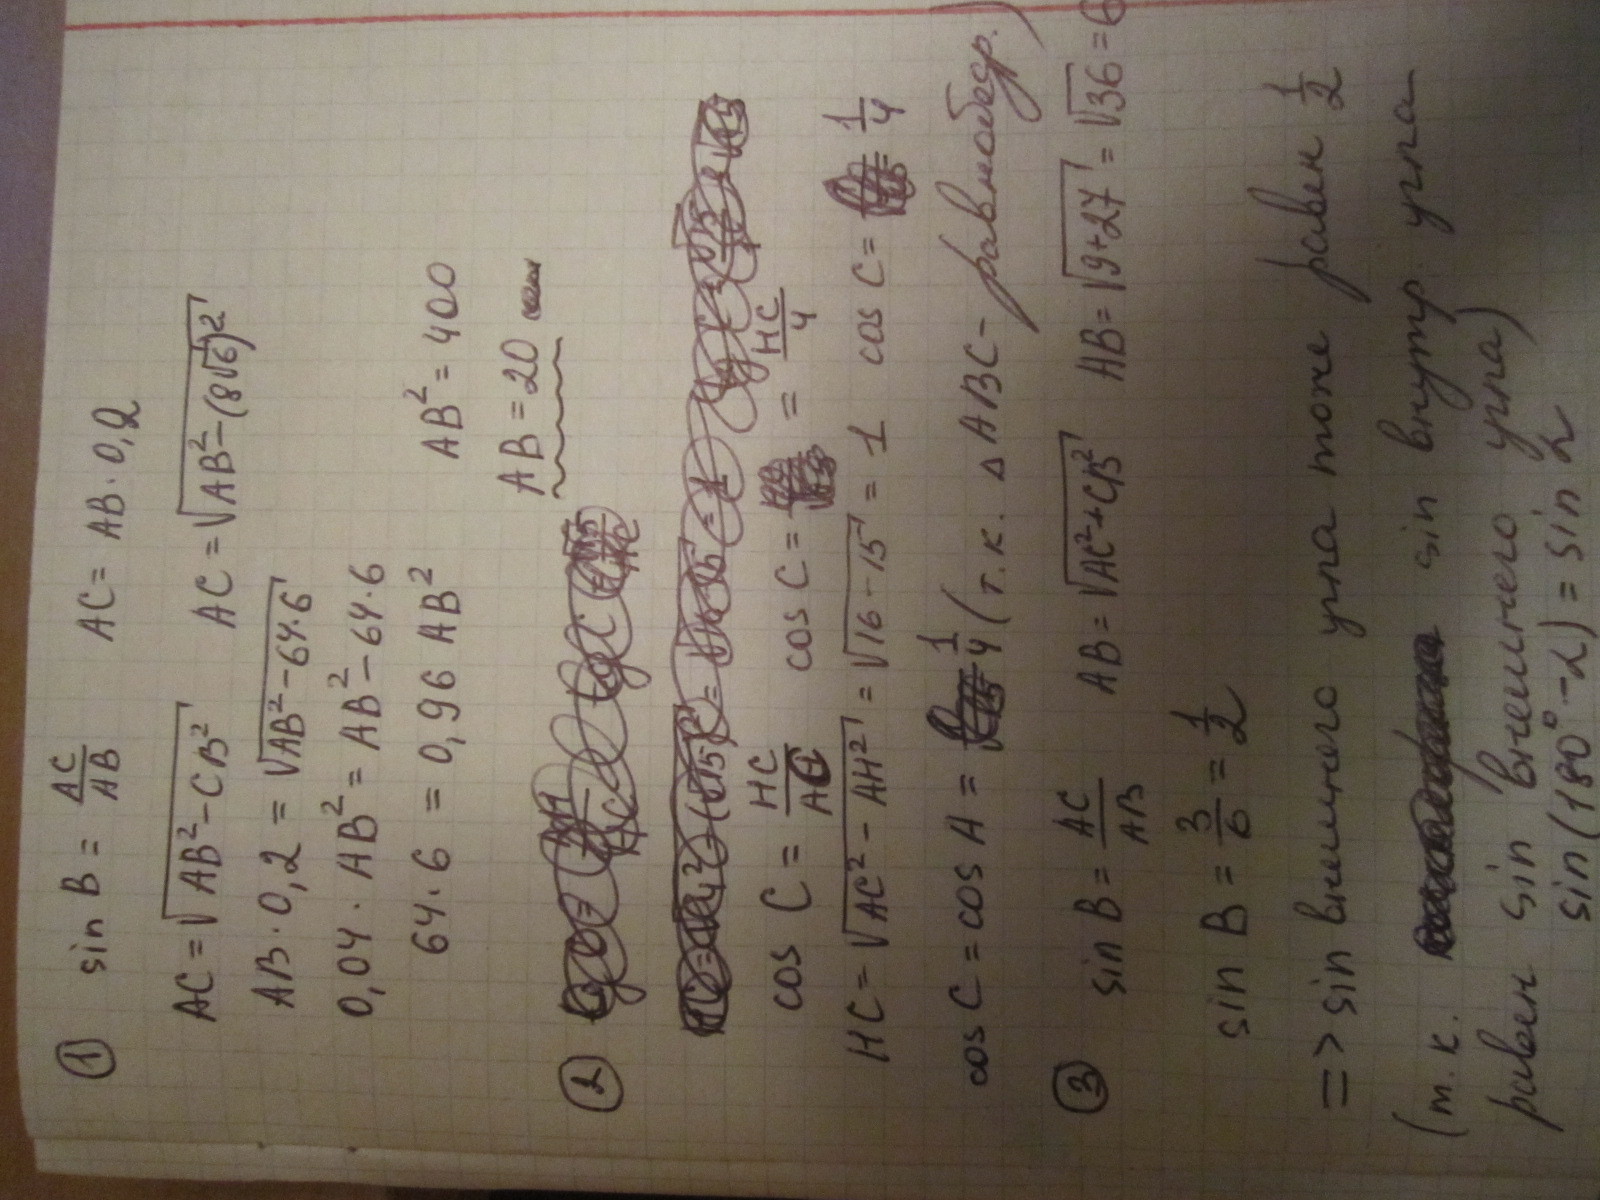 ① sin B = AC/AB   AC = AB · 0,2
AC = √(AB² − CB²)   AC = √(AB² − (8√6)²)
AB · 0,2 = √(AB² − 64·6)
0,04 · AB² = AB² − 64·6
64·6 = 0,96 AB²   AB² = 400
AB = 20
②
cos C = HC/AC   cos C = = HC/4
HC = √(AC² − AH²) = √(16 − 15) = 1   cos C = 1/4
cos C = cos A = 1/4 (т.к. △ ABC – равнобедр.)
③ sin B = AC/AB   AB = √(AC² + CB²)   AB = √(9+27) = √36 = 6
sin B = 3/6 = 1/2
=> sin внешнего угла тоже равен 1/2
(т.к. sin внутр. угла
равен sin внешнего угла)
sin(180° − α) = sin α